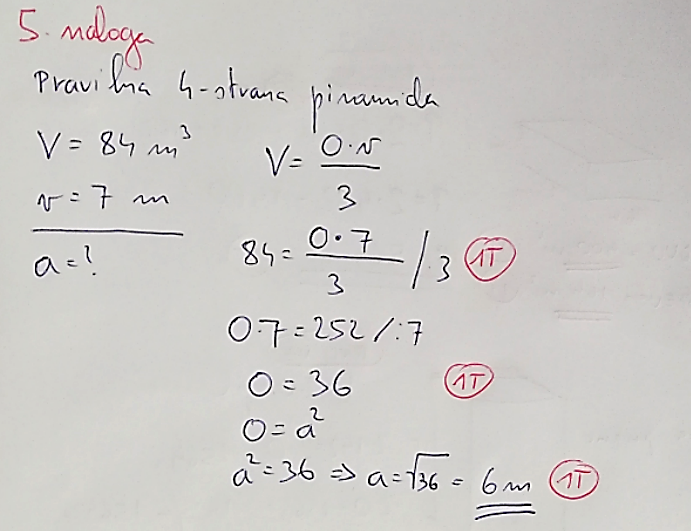 5. naloga
Pravilna 4-strana piramida
V = 84 m³
v = 7 m
a = ?
V = O·v / 3
84 = O·7 / 3 /·3 1T
O·7 = 252 /:7
O = 36 1T
O = a²
a² = 36 => a = √36 = 6 m 1T